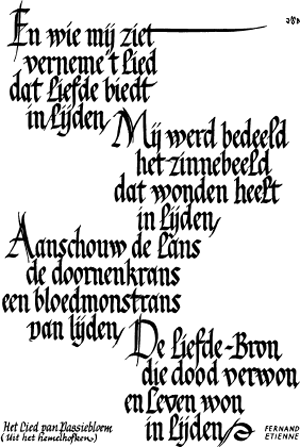 En wie mij ziet
verneme 't Lied
dat Liefde biedt
in Lijden,
Mij werd bedeeld
het zinnebeeld
dat wonden heelt
in Lijden,
Aanschouw de Lans
de doornenkrans
een bloedmonstrans
van lijden,
De Liefde-Bron
die dood verwon
en Leven won
in Lijden,
Het Lied van Passiebloem
(Uit het hemelhofken)
FERNAND
ETIENNE